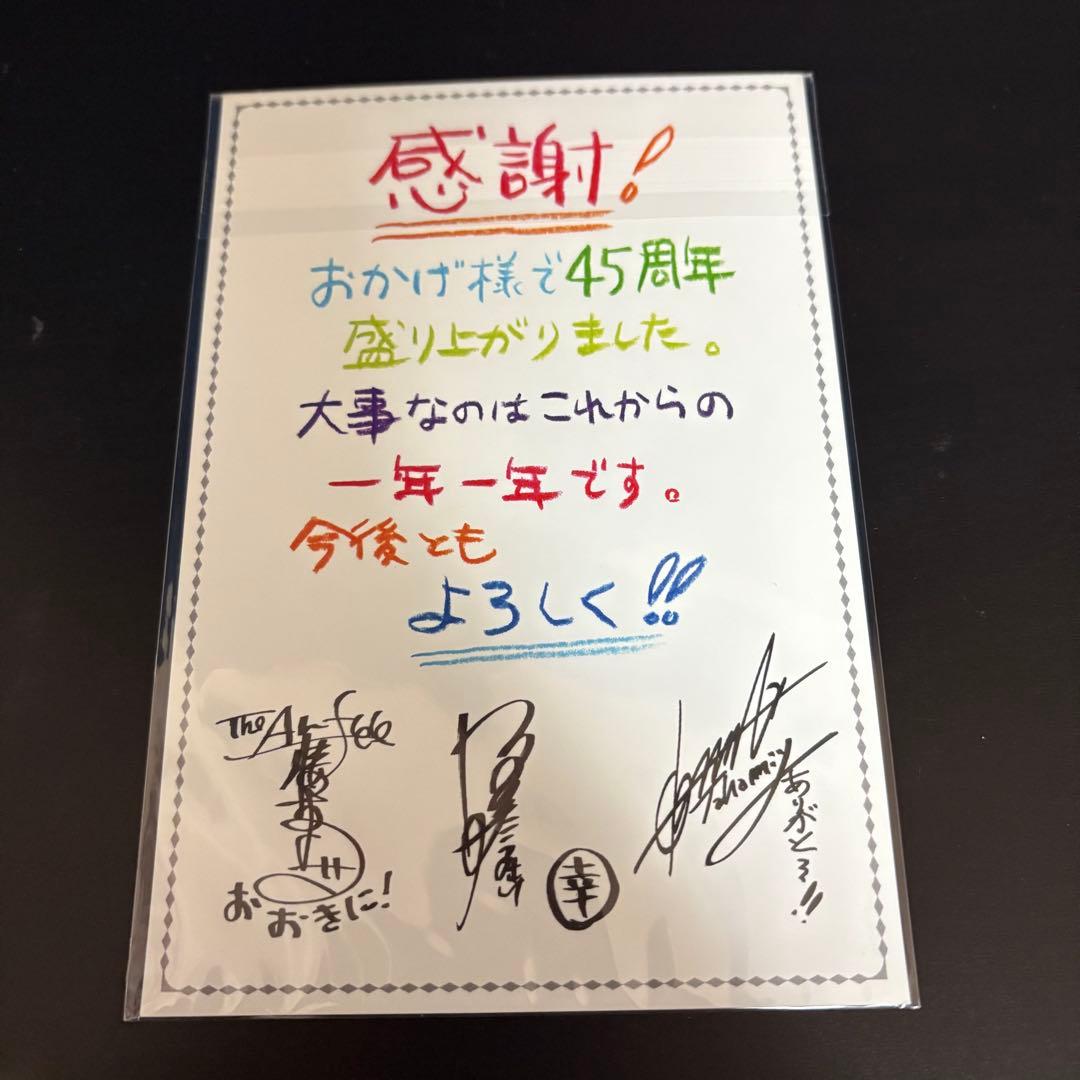 感謝!
おかげ様で45周年
盛り上がりました。
大事なのはこれからの
一年一年です。
今後とも
よろしく!!
The Alfee
おおきに!
幸
ありがとう!!